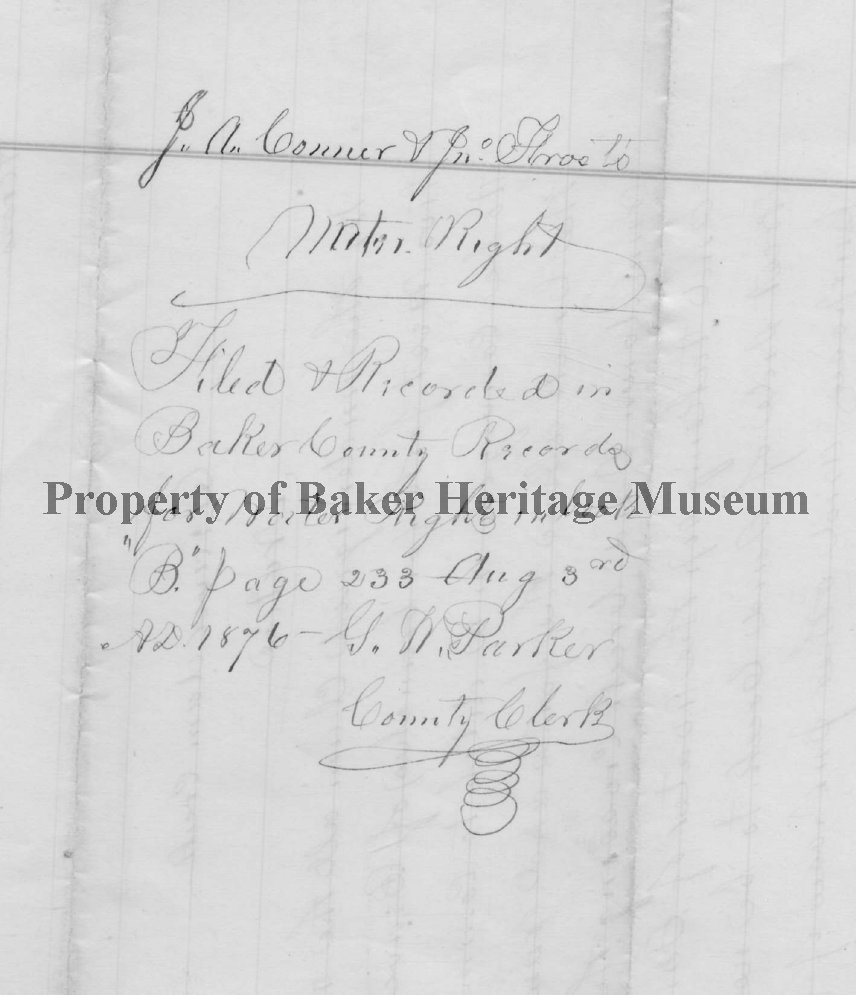 J. A. Conner & Jno.
Water Right
Filed & Recorded in
Baker County Records
Property of Baker Heritage Museum
for Water Rights in book
"B." page 233 Aug 3rd
A.D. 1876 - G. W. Parker
County Clerk